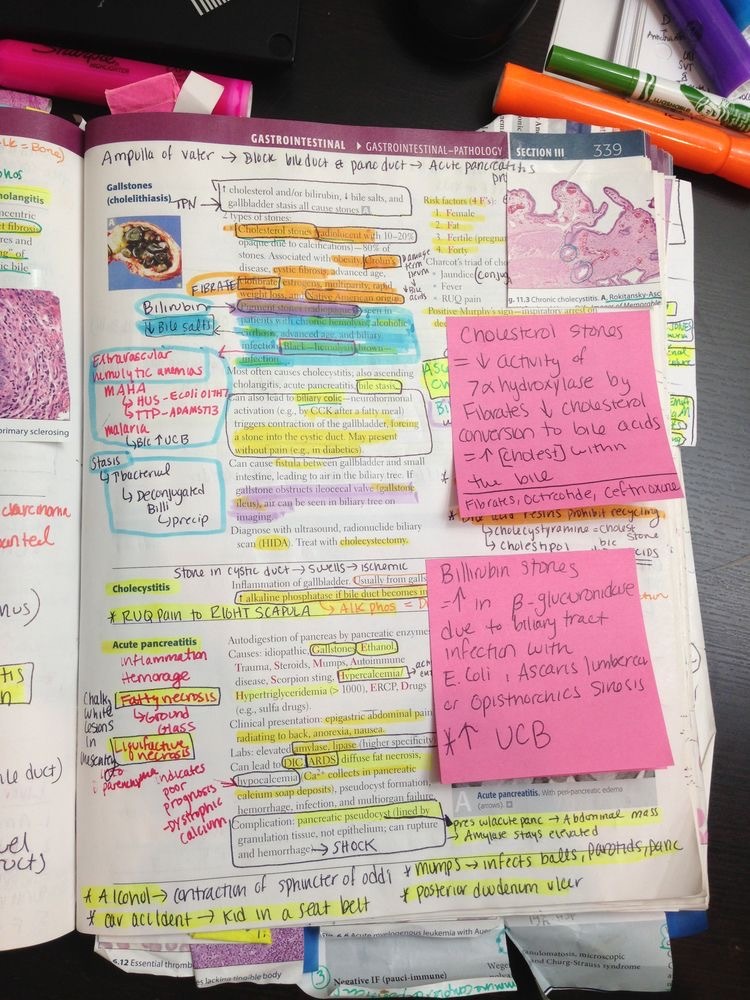 Sharpie
HIGHLIGHTER
GASTROINTESTINAL ▶ GASTROINTESTINAL–PATHOLOGY
SECTION III 339
Ampulla of vater → Block bile duct & panc duct → Acute pancreatitis
Gallstones
(cholelithiasis)
TPN →
↑ cholesterol and/or bilirubin, ↓ bile salts, and
gallbladder stasis all cause stones
2 types of stones:
Cholesterol stones (radiolucent with 10–20%
opaque due to calcifications)—80% of
stones. Associated with obesity, Crohn's
disease, cystic fibrosis, advanced age,
FIBRATE
clofibrate, estrogens, multiparity, rapid
weight loss, and Native American origin
Pigment stones (radiopaque) seen in
patients with chronic hemolysis, alcoholic
cirrhosis, advanced age, and biliary
infection. Black—hemolysis, brown—
infection.
Most often causes cholecystitis; also ascending
cholangitis, acute pancreatitis, bile stasis.
can also lead to biliary colic—neurohormonal
activation (e.g., by CCK after a fatty meal)
triggers contraction of the gallbladder, forcing
a stone into the cystic duct. May present
without pain (e.g., in diabetics).
Can cause fistula between gallbladder and small
intestine, leading to air in the biliary tree. If
gallstone obstructs ileocecal valve (gallstone
ileus), air can be seen in biliary tree on
imaging.
Diagnose with ultrasound, radionuclide biliary
scan (HIDA). Treat with cholecystectomy.
Bilirubin
↓ Bile salts
Extravascular
hemolytic anemias
MAHA
↳ HUS - Ecoli O157H7
↳ TTP - ADAMST13
malaria
↳ B/c ↑ UCB
Stasis
↳ ↑ bacterial
↳ Deconjugated
Billi
↳ Precip
Risk factors (4 F's):
1. Female
2. Fat
3. Fertile (pregnan
4. Forty
Charcot's triad of cho
Jaundice (conjug
Fever
RUQ pain
Positive Murphy's sign—inspiratory arrest on
Damage
term
ileum
↓ Bile
acids
g. 11.3 Chronic cholecystitis. A, Rokitansky-Asc
Cholesterol stones
= ↓ activity of
7α hydroxylase by
Fibrates ↓ cholesterol
conversion to bile acids
= ↑ [cholest] within
the bile
Fibrates, octreotide, ceftriaxone
* Bile acid resins prohibit recycling
↳ cholestyramine = cholest
↳ cholestipol
stone
Stone in cystic duct → swells → ischemic
Cholecystitis
Inflammation of gallbladder. Usually from galls
↑ alkaline phosphatase if bile duct becomes in
* RUQ Pain to RIGHT SCAPULA
↳ Alk phos =
Billirubin stones
= ↑ in β-glucuronidase
due to biliary tract
infection with
E.Coli, Ascaris lumbercoi
or Opisthorchics Sinosis
*↑ UCB
Acute pancreatitis
Inflammation
Hemorage
Fatty necrosis
↳ Ground
Glass
Liquifactive
necrosis
Chalky
white
lesions
in
mesentery
indicates
poor
prognosis
→ Dystrophic
calcium
Autodigestion of pancreas by pancreatic enzymes
Causes: idiopathic, Gallstones, Ethanol,
Trauma, Steroids, Mumps, Autoimmune
disease, Scorpion sting, Hypercalcemia/
Hypertriglyceridemia (> 1000), ERCP, Drugs
(e.g., sulfa drugs).
Clinical presentation: epigastric abdominal pain
radiating to back, anorexia, nausea.
Labs: elevated amylase, lipase (higher specificity
Can lead to DIC, ARDS, diffuse fat necrosis,
hypocalcemia (Ca²⁺ collects in pancreatic
calcium soap deposits), pseudocyst formation,
hemorrhage, infection, and multiorgan failure.
Complication: pancreatic pseudocyst (lined by
granulation tissue, not epithelium; can rupture
and hemorrhage) → SHOCK
Acute pancreatitis. With peri-pancreatic edema
(arrows).
pres w/acute panc → Abdominal mass
→ Amylase stays elevated
* Alcohol → contraction of sphincter of oddi
* mumps → infects balls, parotids, panc
* car accident → kid in a seat belt
* posterior duodenum ulcer
primary sclerosing
5.12 Essential thromb
es lacking tingible body
Acute myelogenous leukemia with Auer
③
Negative IF (pauci-immune)
nulomatosis, microscopic
and Churg-Strauss syndrome